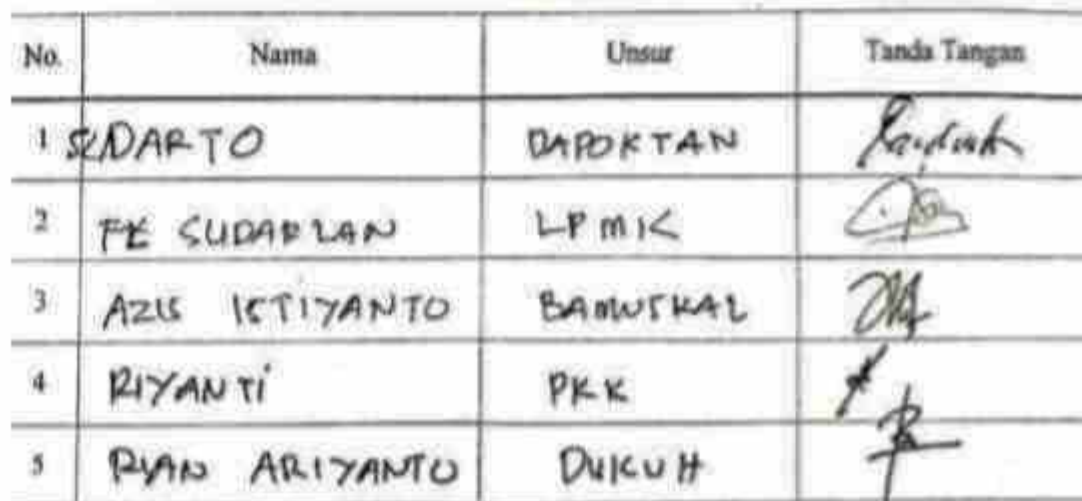 No. Nama Unsur Tanda Tangan
1 SUDARTO DAPOKTAN
2 FX SUDARLAN LPMK
3 AZIS ISTIYANTO BAMUSKAL
4 RIYANTI PKK
5 RIAN ARIYANTO DUKUH